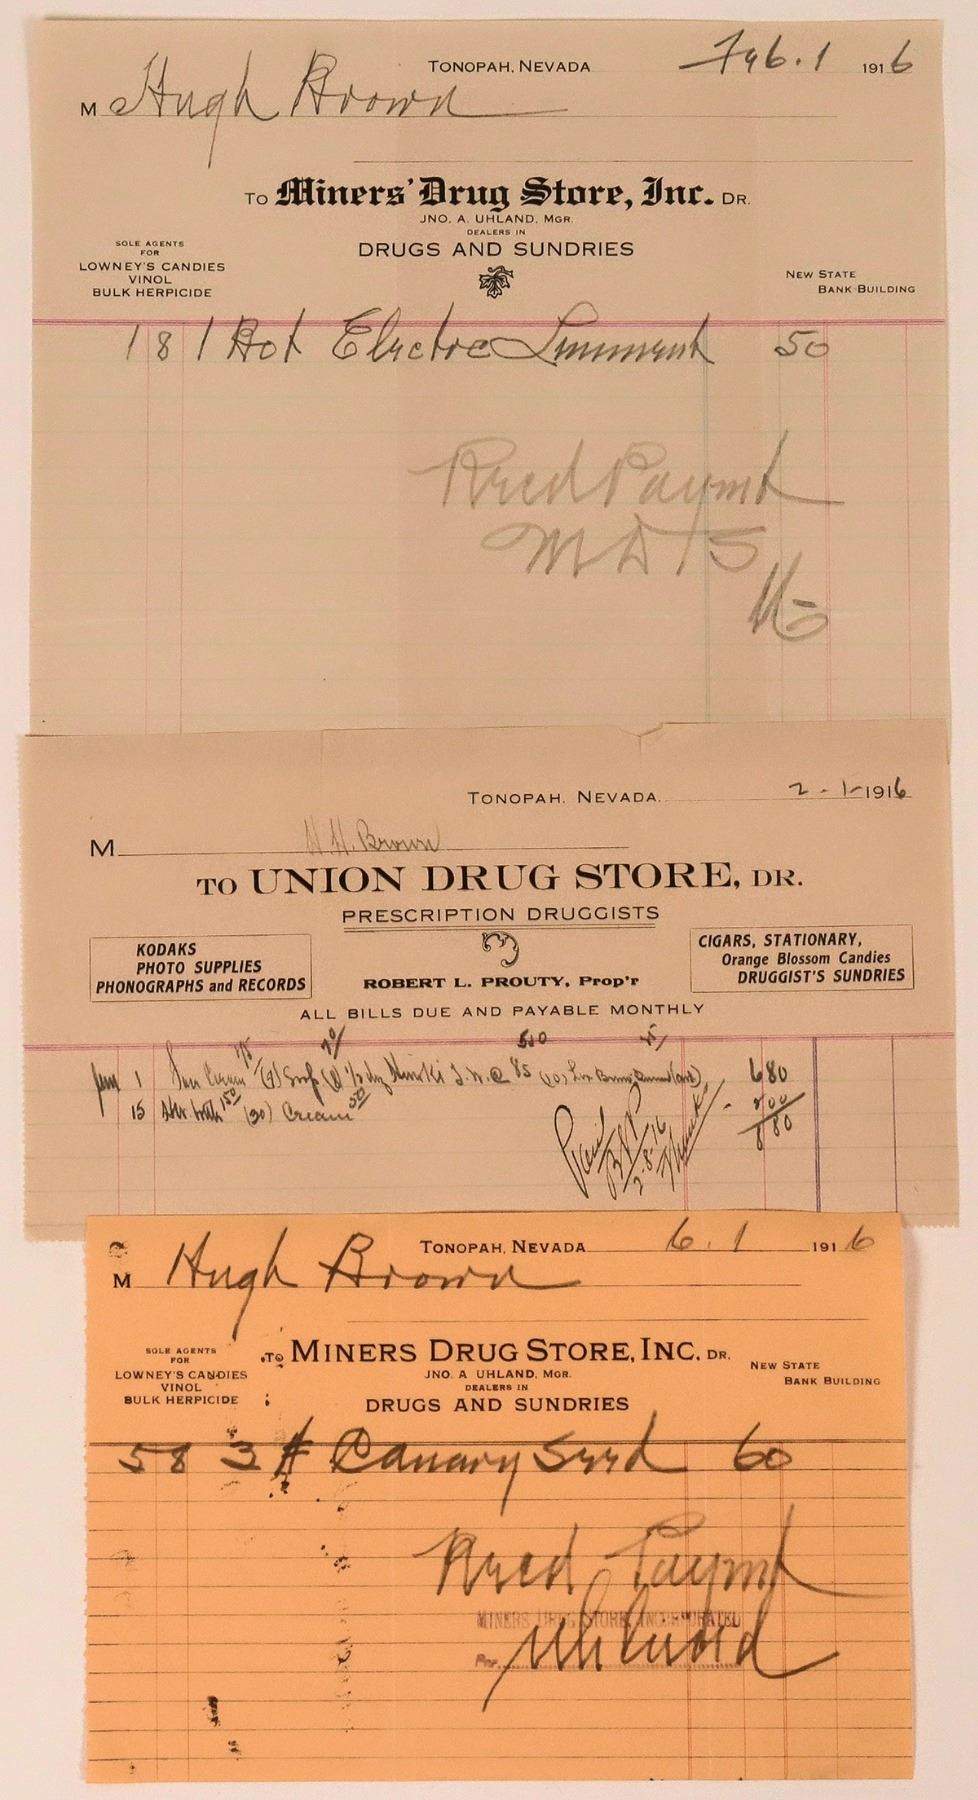 TONOPAH, NEVADA Feb. 1 1916
M Hugh Brown
TO Miners' Drug Store, Inc. DR.
JNO. A. UHLAND, MGR.
DEALERS IN
DRUGS AND SUNDRIES
SOLE AGENTS
FOR
LOWNEY'S CANDIES
VINOL
BULK HERPICIDE
NEW STATE
BANK BUILDING
1 8 1 Bot Electric Liniment 50
Recd Paymt
M D S
TONOPAH, NEVADA. 2-1-1916
M H. H. Brown
TO UNION DRUG STORE, DR.
PRESCRIPTION DRUGGISTS
KODAKS
PHOTO SUPPLIES
PHONOGRAPHS and RECORDS
ROBERT L. PROUTY, Prop'r
CIGARS, STATIONARY,
Orange Blossom Candies
DRUGGIST'S SUNDRIES
ALL BILLS DUE AND PAYABLE MONTHLY
75 70 500 45
1 Cream (7) Soap @ 85 6 80
15 150 (30) Cream 50 2 00
8 80
Paid
2-8-16
Thanks
TONOPAH, NEVADA 6.1 1916
M Hugh Brown
TO MINERS DRUG STORE, INC. DR.
JNO. A UHLAND, MGR.
DEALERS IN
DRUGS AND SUNDRIES
SOLE AGENTS
FOR
LOWNEY'S CANDIES
VINOL
BULK HERPICIDE
NEW STATE
BANK BUILDING
5 8 3 # Canary Seed 60
Recd Paymt
MINERS DRUG STORE, INCORPORATED
Per Uhland